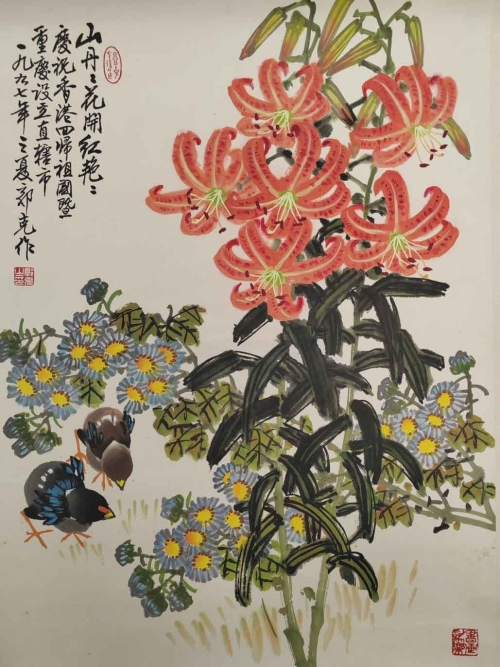 山丹〻花開红艳〻
慶祝香港回帰祖國暨
重慶设立直辖市
一九九七年之夏郭克作